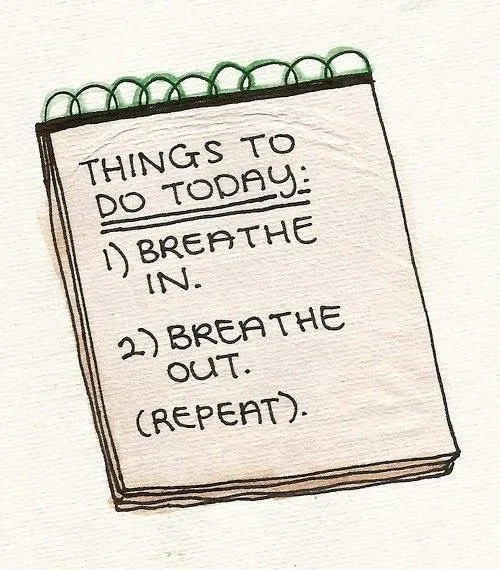 THINGS TO
DO TODAY:
1) BREATHE
IN.
2) BREATHE
OUT.
(REPEAT).